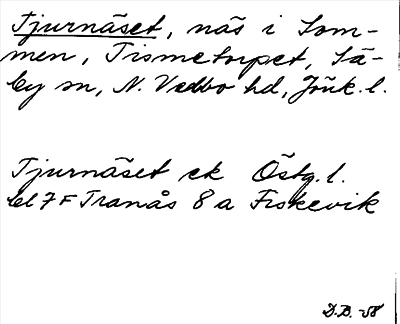 Tjurnäset, näs i Som-
men, Tismetorpet, Sä-
by sn, N. Vedbo hd, Jönk. l.
Tjurnäset ek Östg. l.
bl 7 F Tranås 8 a Fiskevik
D.B. -58